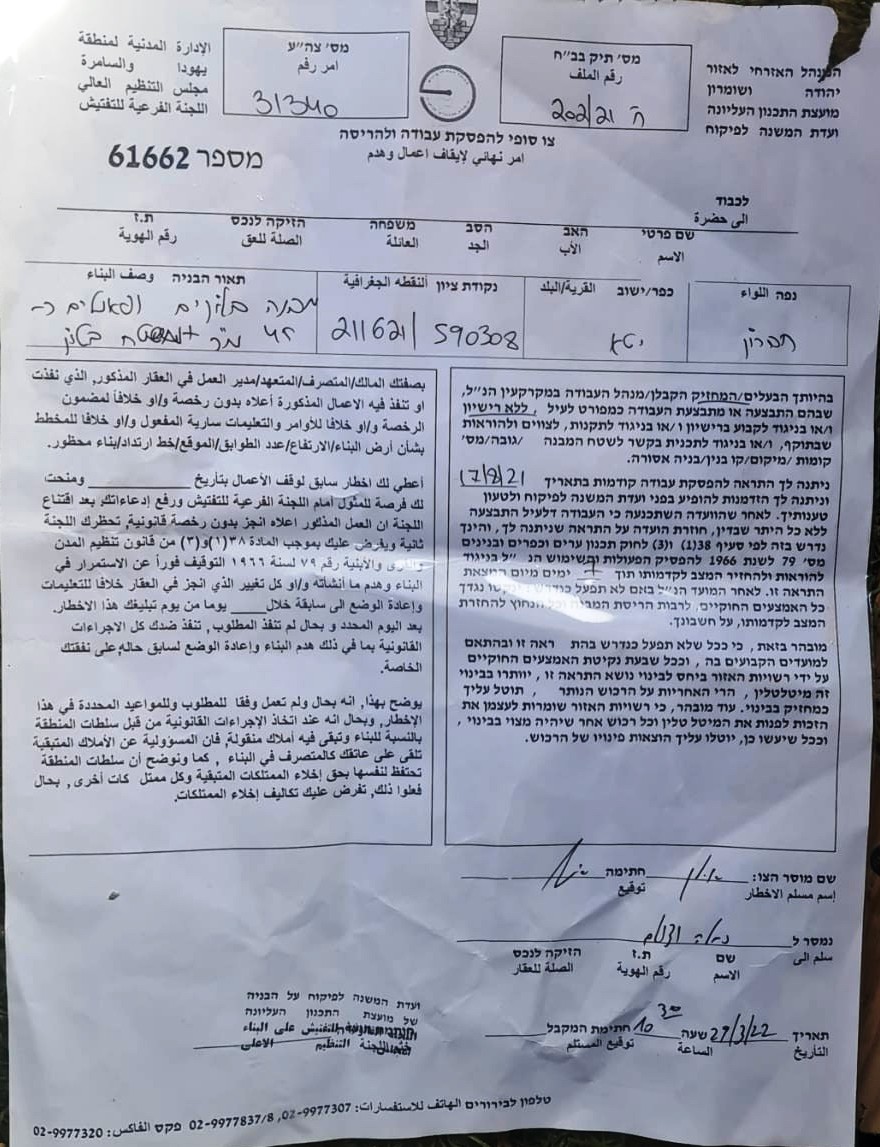 המנהל האזרחי לאזור
יהודה ושומרון
מועצת התכנון העליונה
ועדת המשנה לפיקוח
מס' תיק בב"ח
رقم الملف
ח 202/21
מס' צה"ע
امر رقم
31340
الإدارة المدنية لمنطقة
يهودا والسامرة
مجلس التنظيم العالي
اللجنة الفرعية للتفتيش
צו סופי להפסקת עבודה ולהריסה
امر نهائي لإيقاف اعمال وهدم
מספר 61662
לכבוד
الى حضرة
שם פרטי האב הסב משפחה הזיקה לנכס ת.ז
الاسم الأب الجد العائلة الصلة للعق رقم الهوية
נפה اللواء
חברון
כפר/ישוב القرية/البلد
יטא
נקודת ציון النقطه الجغرافية
211621/590308
תאור הבניה وصف البناء
מבנה בלוקים
מ"ר בטון
בהיותך הבעלים/המחזיק הקבלן/מנהל העבודה במקרקעין הנ"ל,
שבהם התבצעה או מתבצעת העבודה כמפורט לעיל , ללא רישיון
ו/או בניגוד לקבוע ברישיון ו/או בניגוד לתקנות, לצווים ולהוראות
שבתוקף, ו/או בניגוד לתכנית בקשר לשטח המבנה /גובה/מס'
קומות /מיקום/קו בנין/בניה אסורה.
ניתנה לך התראה להפסקת עבודה קודמות בתאריך 17/8/21
וניתנה לך הזדמנות להופיע בפני ועדת המשנה לפיקוח ולטעון
טענותיך. לאחר שהוועדה השתכנעה כי העבודה דלעיל התבצעה
ללא כל היתר שבדין, חוזרת הועדה על התראה שניתנה לך, והינך
נדרש בזה לפי סעיף 38(1) ו(3) לחוק תכנון ערים וכפרים ובנינים
מס' 79 לשנת 1966 להפסיק הפעולות והשימוש הנ"ל בניגוד
להוראות ולהחזיר המצב לקדמותו תוך 7 ימים מיום המצאת
התראה זו. לאחר המועד הנ"ל באם לא תפעל כנדרש ינקטו נגדך
כל האמצעים החוקיים, לרבות הריסת המבנה וכל הנחוץ להחזרת
המצב לקדמותו, על חשבונך.
מובהר בזאת, כי ככל שלא תפעל כנדרש בהת ראה זו ובהתאם
למועדים הקבועים בה , וככל שבעת נקיטת האמצעים החוקיים
על ידי רשויות האזור ביחס לבינוי נושא התראה זו, יוותרו בבינוי
זה מיטלטלין, הרי האחריות על הרכוש הנותר , תוטל עליך
כמחזיק בבינוי. עוד מובהר, כי רשויות האזור שומרות לעצמן את
הזכות לפנות את המיטל טלין וכל רכוש אחר שיהיה מצוי בבינוי ,
וככל שיעשו כן, יוטלו עליך הוצאות פינויו של הרכוש.
بصفتك المالك/المتصرف/المتعهد/مدير العمل في العقار المذكور, الذي نفذت
او تنفذ فيه الاعمال المذكورة أعلاه بدون رخصة و/او خلافاً لمضمون
الرخصة و/او خلافا للأوامر والتعليمات سارية المفعول و/او خلافا للمخطط
بشأن أرض البناء/الارتفاع/عدد الطوابق/الموقع/خط ارتداد/بناء محظور.
أعطي لك اخطار سابق لوقف الأعمال بتاريخ ومنحت
لك فرصة للمثول أمام اللجنة الفرعية للتفتيش ورفع إدعاءاتك, بعد اقتناع
اللجنة ان العمل المذكور اعلاه انجز بدون رخصة قانونية, تحظرك اللجنة
ثانية ويفرض عليك بموجب المادة ٣٨(١)و(٣) من قانون تنظيم المدن
والقرى والأبنية رقم ٧٩ لسنة ١٩٦٦ التوقيف فوراً عن الاستمرار في
البناء وهدم ما أنشأته و/او كل تغيير الذي انجز في العقار خلافا للتعليمات
وإعادة الوضع الى سابقة خلال يوما من يوم تبليغك هذا الاخطار.
بعد اليوم المحدد و بحال لم تنفذ المطلوب, تنفذ ضدك كل الاجراءات
القانونية بما في ذلك هدم البناء وإعادة الوضع لسابق حاله, على نفقتك
الخاصة.
يوضح بهذا, انه بحال ولم تعمل وفقا للمطلوب وللمواعيد المحددة في هذا
الإخطار, وبحال انه عند اتخاذ الإجراءات القانونية من قبل سلطات المنطقة
بالنسبة للبناء وتبقى فيه أملاك منقولة, فان المسؤولية عن الأملاك المتبقية
تلقى على عاتقك كالمتصرف في البناء , كما ونوضح أن سلطات المنطقة
تحتفظ لنفسها بحق إخلاء الممتلكات المتبقية وكل ممتل كات أخرى, بحال
فعلوا ذلك, تفرض عليك تكاليف إخلاء الممتلكات.
שם מוסר הצו: חתימה
إسم مسلم الاخطار توقيع
נמסר ל
سلم الى
שם ת.ז הזיקה לנכס
الاسم رقم الهوية الصلة للعقار
תאריך 29/3/22 שעה 10 30 חתימת המקבל
التأريخ الساعة توقيع المستلم
ועדת המשנה לפיקוח על הבניה
של מועצת התכנון העליונה
للتفتيش على البناء
اللجنة التنظيم الاعلى
טלפון לבירורים الهاتف للاستفسارات: 02-9977307, 02-9977837/8 פקס الفاكس: 02-9977320